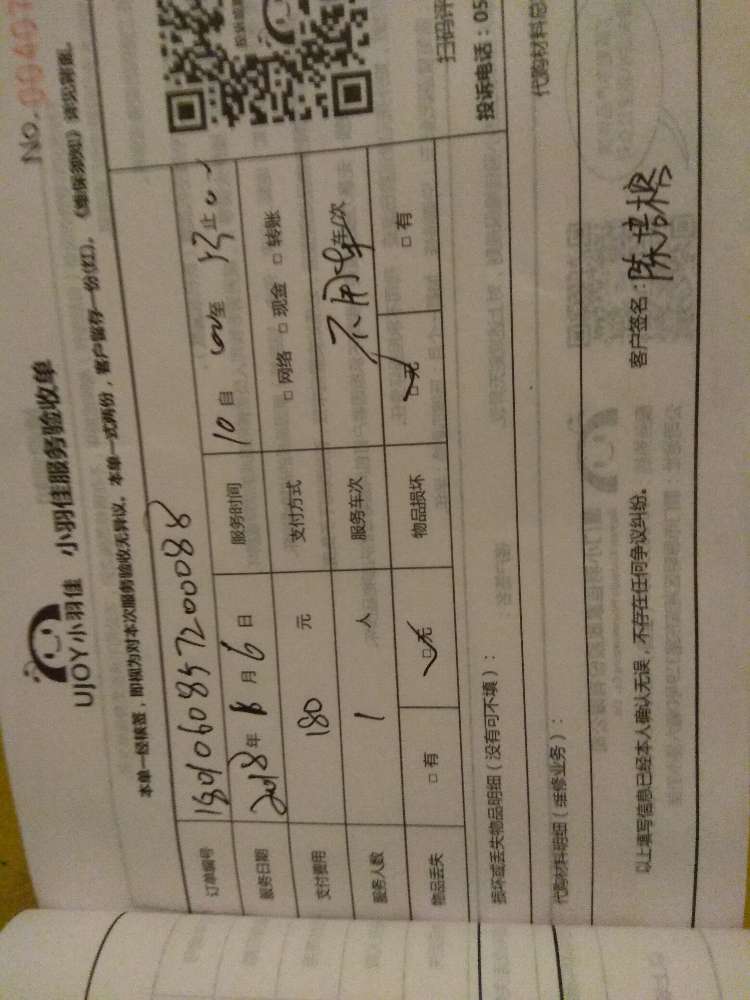 No. 00407
UJOY小羽佳 小羽佳服务验收单
本单一经核签，即视为对本次服务验收无异议。本单一式两份，客户留存一份(红)。《维保须知》请见背面。
订单编号 1801060857200088
服务日期 2018年 月6日 服务时间 10 自 至 止
支付费用 180 元 支付方式 □网络 □现金 □转账
服务人数 1 人 服务车次 不用车 车/次
物品丢失 □有 □无 物品损坏 □无 □有
损坏或丢失物品明细（没有可不填）：
扫码评
投诉电话：05
代购材料明细（维修业务）：
代购材料总
以上填写信息已经本人确认无误，不存在任何争议纠纷。 客户签名：陈